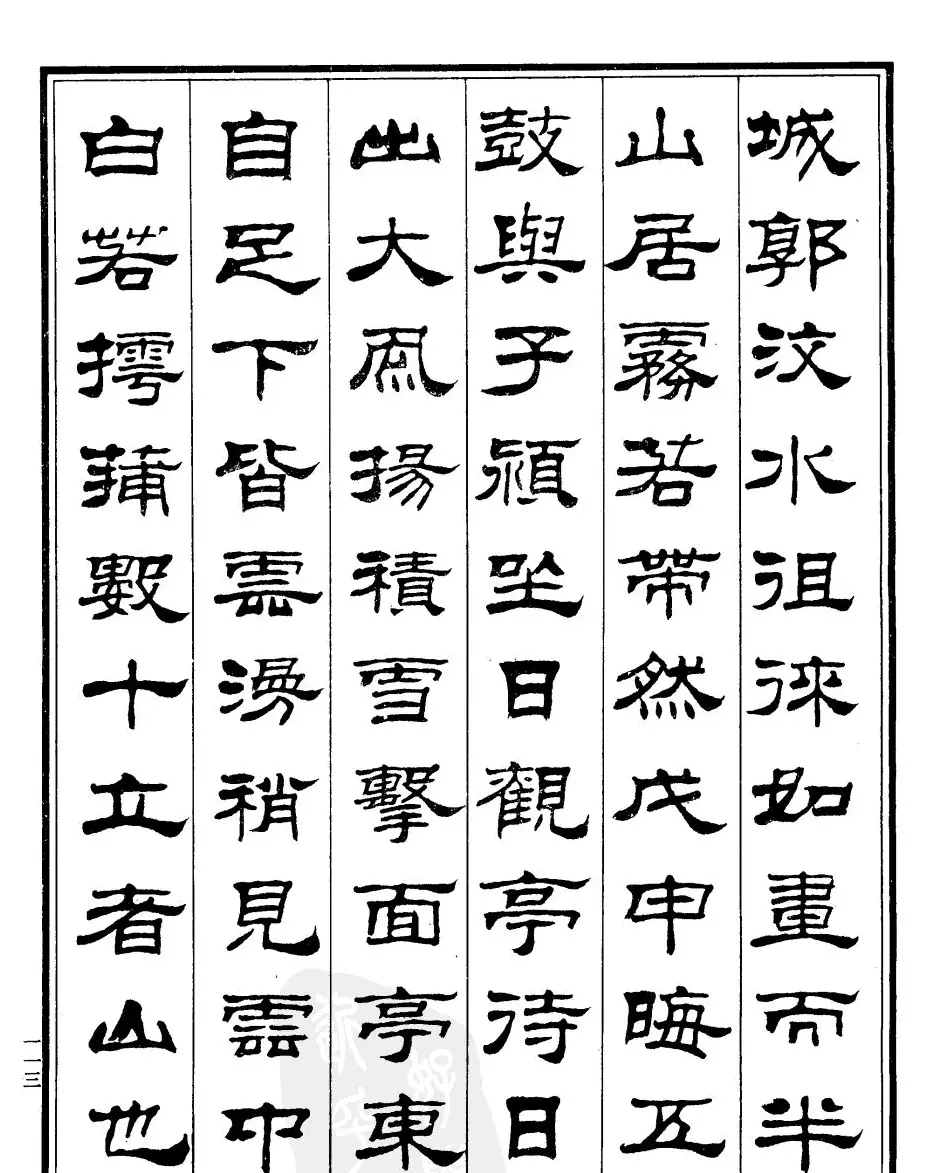 城郭汶水徂徠如畫而半
山居霧若帶然戊申晦五
鼓與子潁坐日觀亭待日
出大風揚積雪擊面亭東
自足下皆雲漫稍見雲中
白若摴蒱數十立者山也
一一三